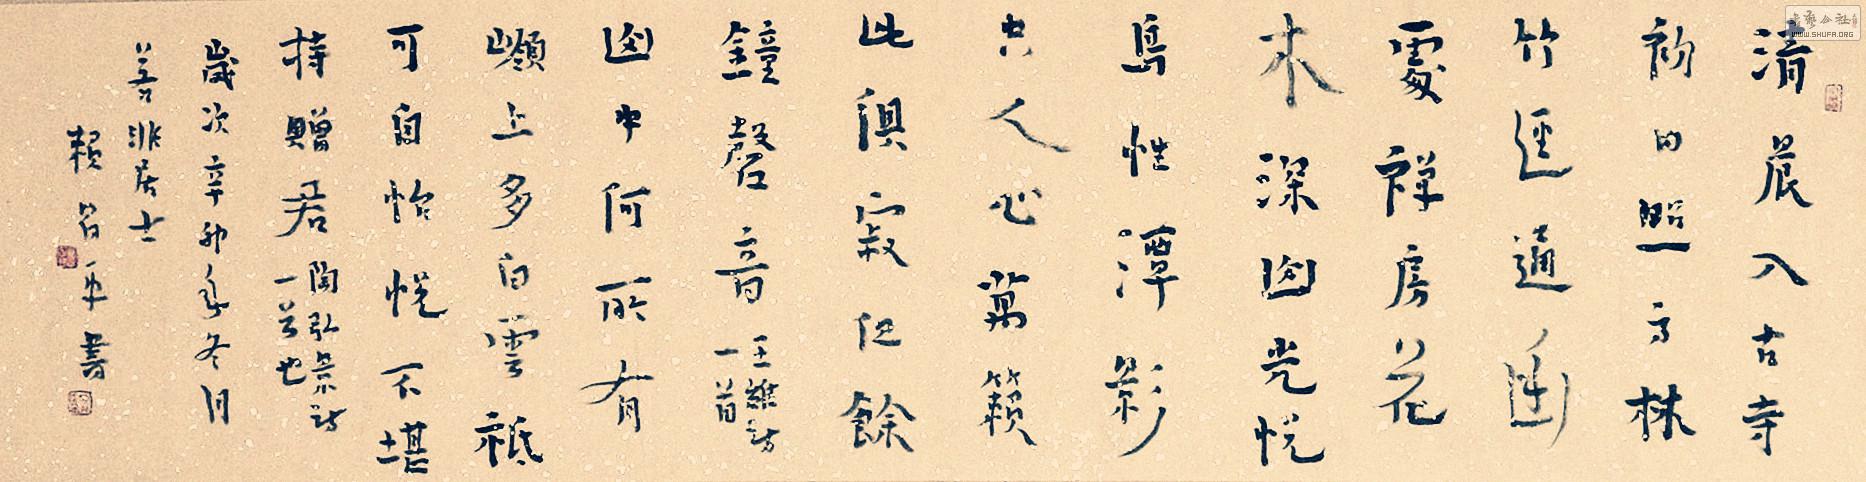 清晨入古寺
初日照高林
竹逕通幽
處禅房花
木深山光悦
鳥性潭影
空人心萬籟
此俱寂但餘
鐘磬音
王維詩
一首
山中何所有
嶺上多白雲祗
可自怡悦不堪
持贈君
陶弘景詩
一首也
歲次辛卯年冬月
善非居士
賴平書
書藝公社
WWW.SHUFA.ORG